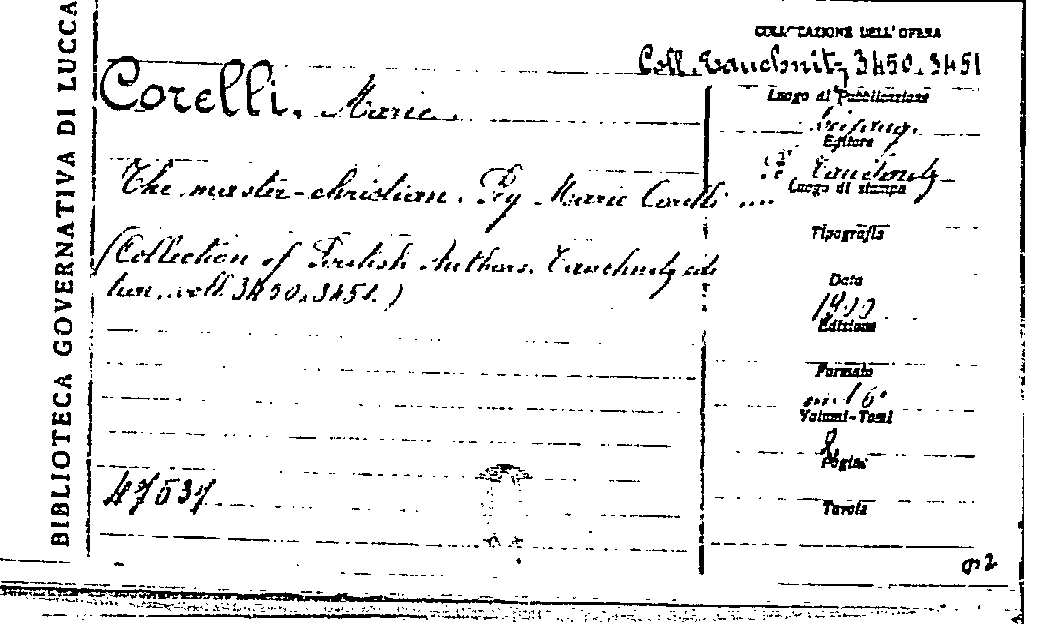 BIBLIOTECA GOVERNATIVA DI LUCCA
COLLOCAZIONE DELL'OPERA
Coll. Tauchnitz 3450.3451
Corelli, Marie.
Luogo di Pubblicazione
Leipzig.
Editore
Tauchnitz
The master-christian. By Marie Corelli ....
Luogo di stampa
Tipografia
(Collection of British Authors. Tauchnitz edi
tion. voll. 3450.3451.)
Data
1900
Edizione
Formato
in-16°
Volumi-Tomi
2
Pagine
47537
Tavole